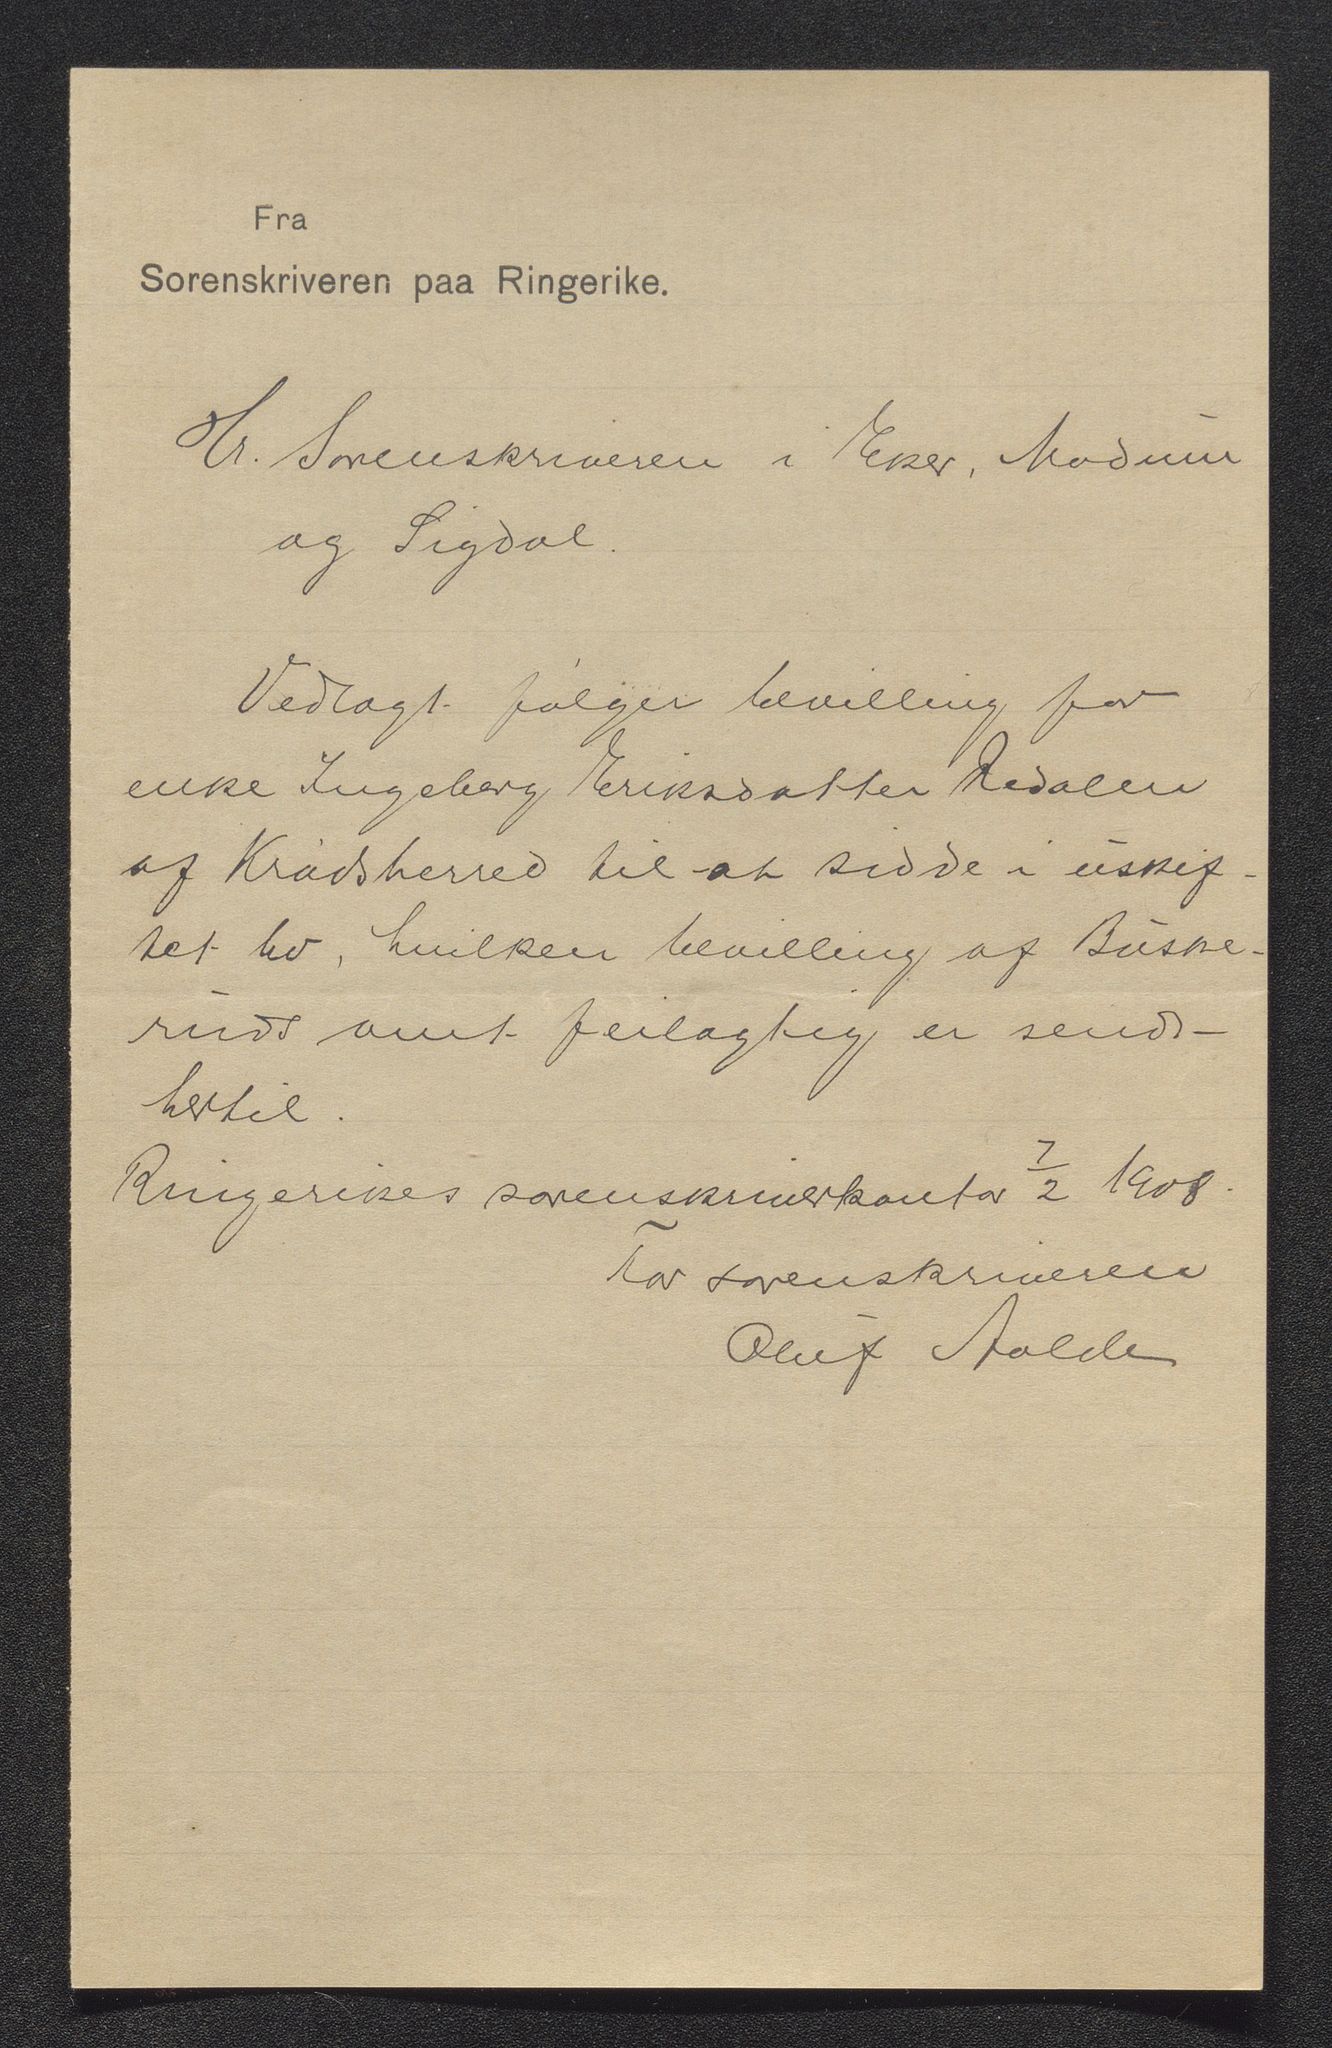 Fra
Sorenskriveren paa Ringerike.
Hr. Sorenskriveren i Eker, Modum
og Sigdal.
Vedlagt følger bevilling for
enke Ingeborg Eriksdatter Redalen
af Krødsherred til at sidde i uskif-
tet bo, hvilken bevilling af Buske-
ruds amt feilagtig er sendt
hertil.
Ringerikes sorenskriverkontor 7/2 1908.
For sorenskriveren
Oluf Aalde